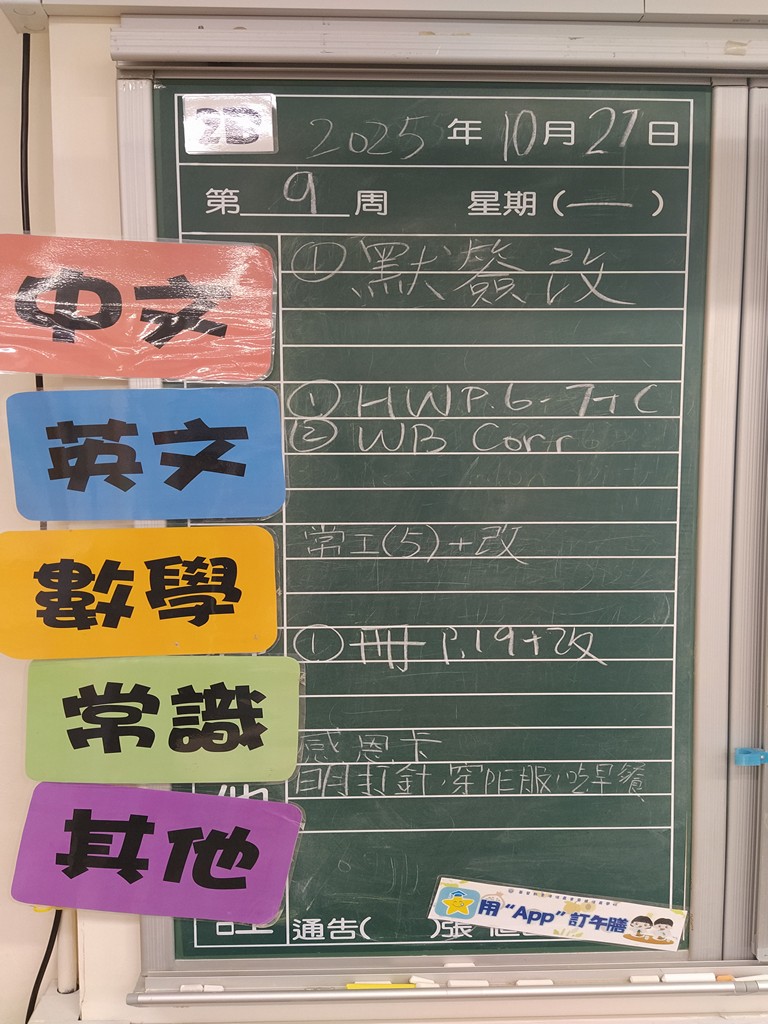 2B 2025年10月27日
第 9 周 星期(一)
中文
① 默簽改
英文
① HW P.6-7+C
② WB Corr
數學
常工(5)+改
常識
① 冊 P.19+改
其他
感恩卡
明打針，穿PE服，吃早餐
用“App”訂午膳
通告( )張